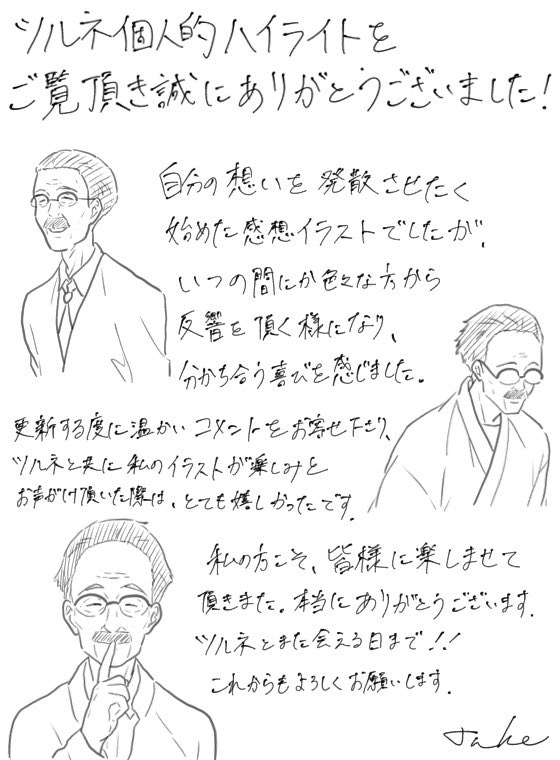 ツルネ個人的ハイライトを
ご覧頂き誠にありがとうございました!
自分の想いを発散させたく
始めた感想イラストでしたが、
いつの間にか色々な方から
反響を頂く様になり、
分かち合う喜びを感じました。
更新する度に温かいコメントをお寄せ下さり、
ツルネと共に私のイラストが楽しみと
お声がけ頂いた際は、とても嬉しかったです.
私の方こそ、皆様に楽しませて
頂きまた。本当にありがとうございます.
ツルネとまた会える日まで!!
これからもよろしくお願いします.
Take